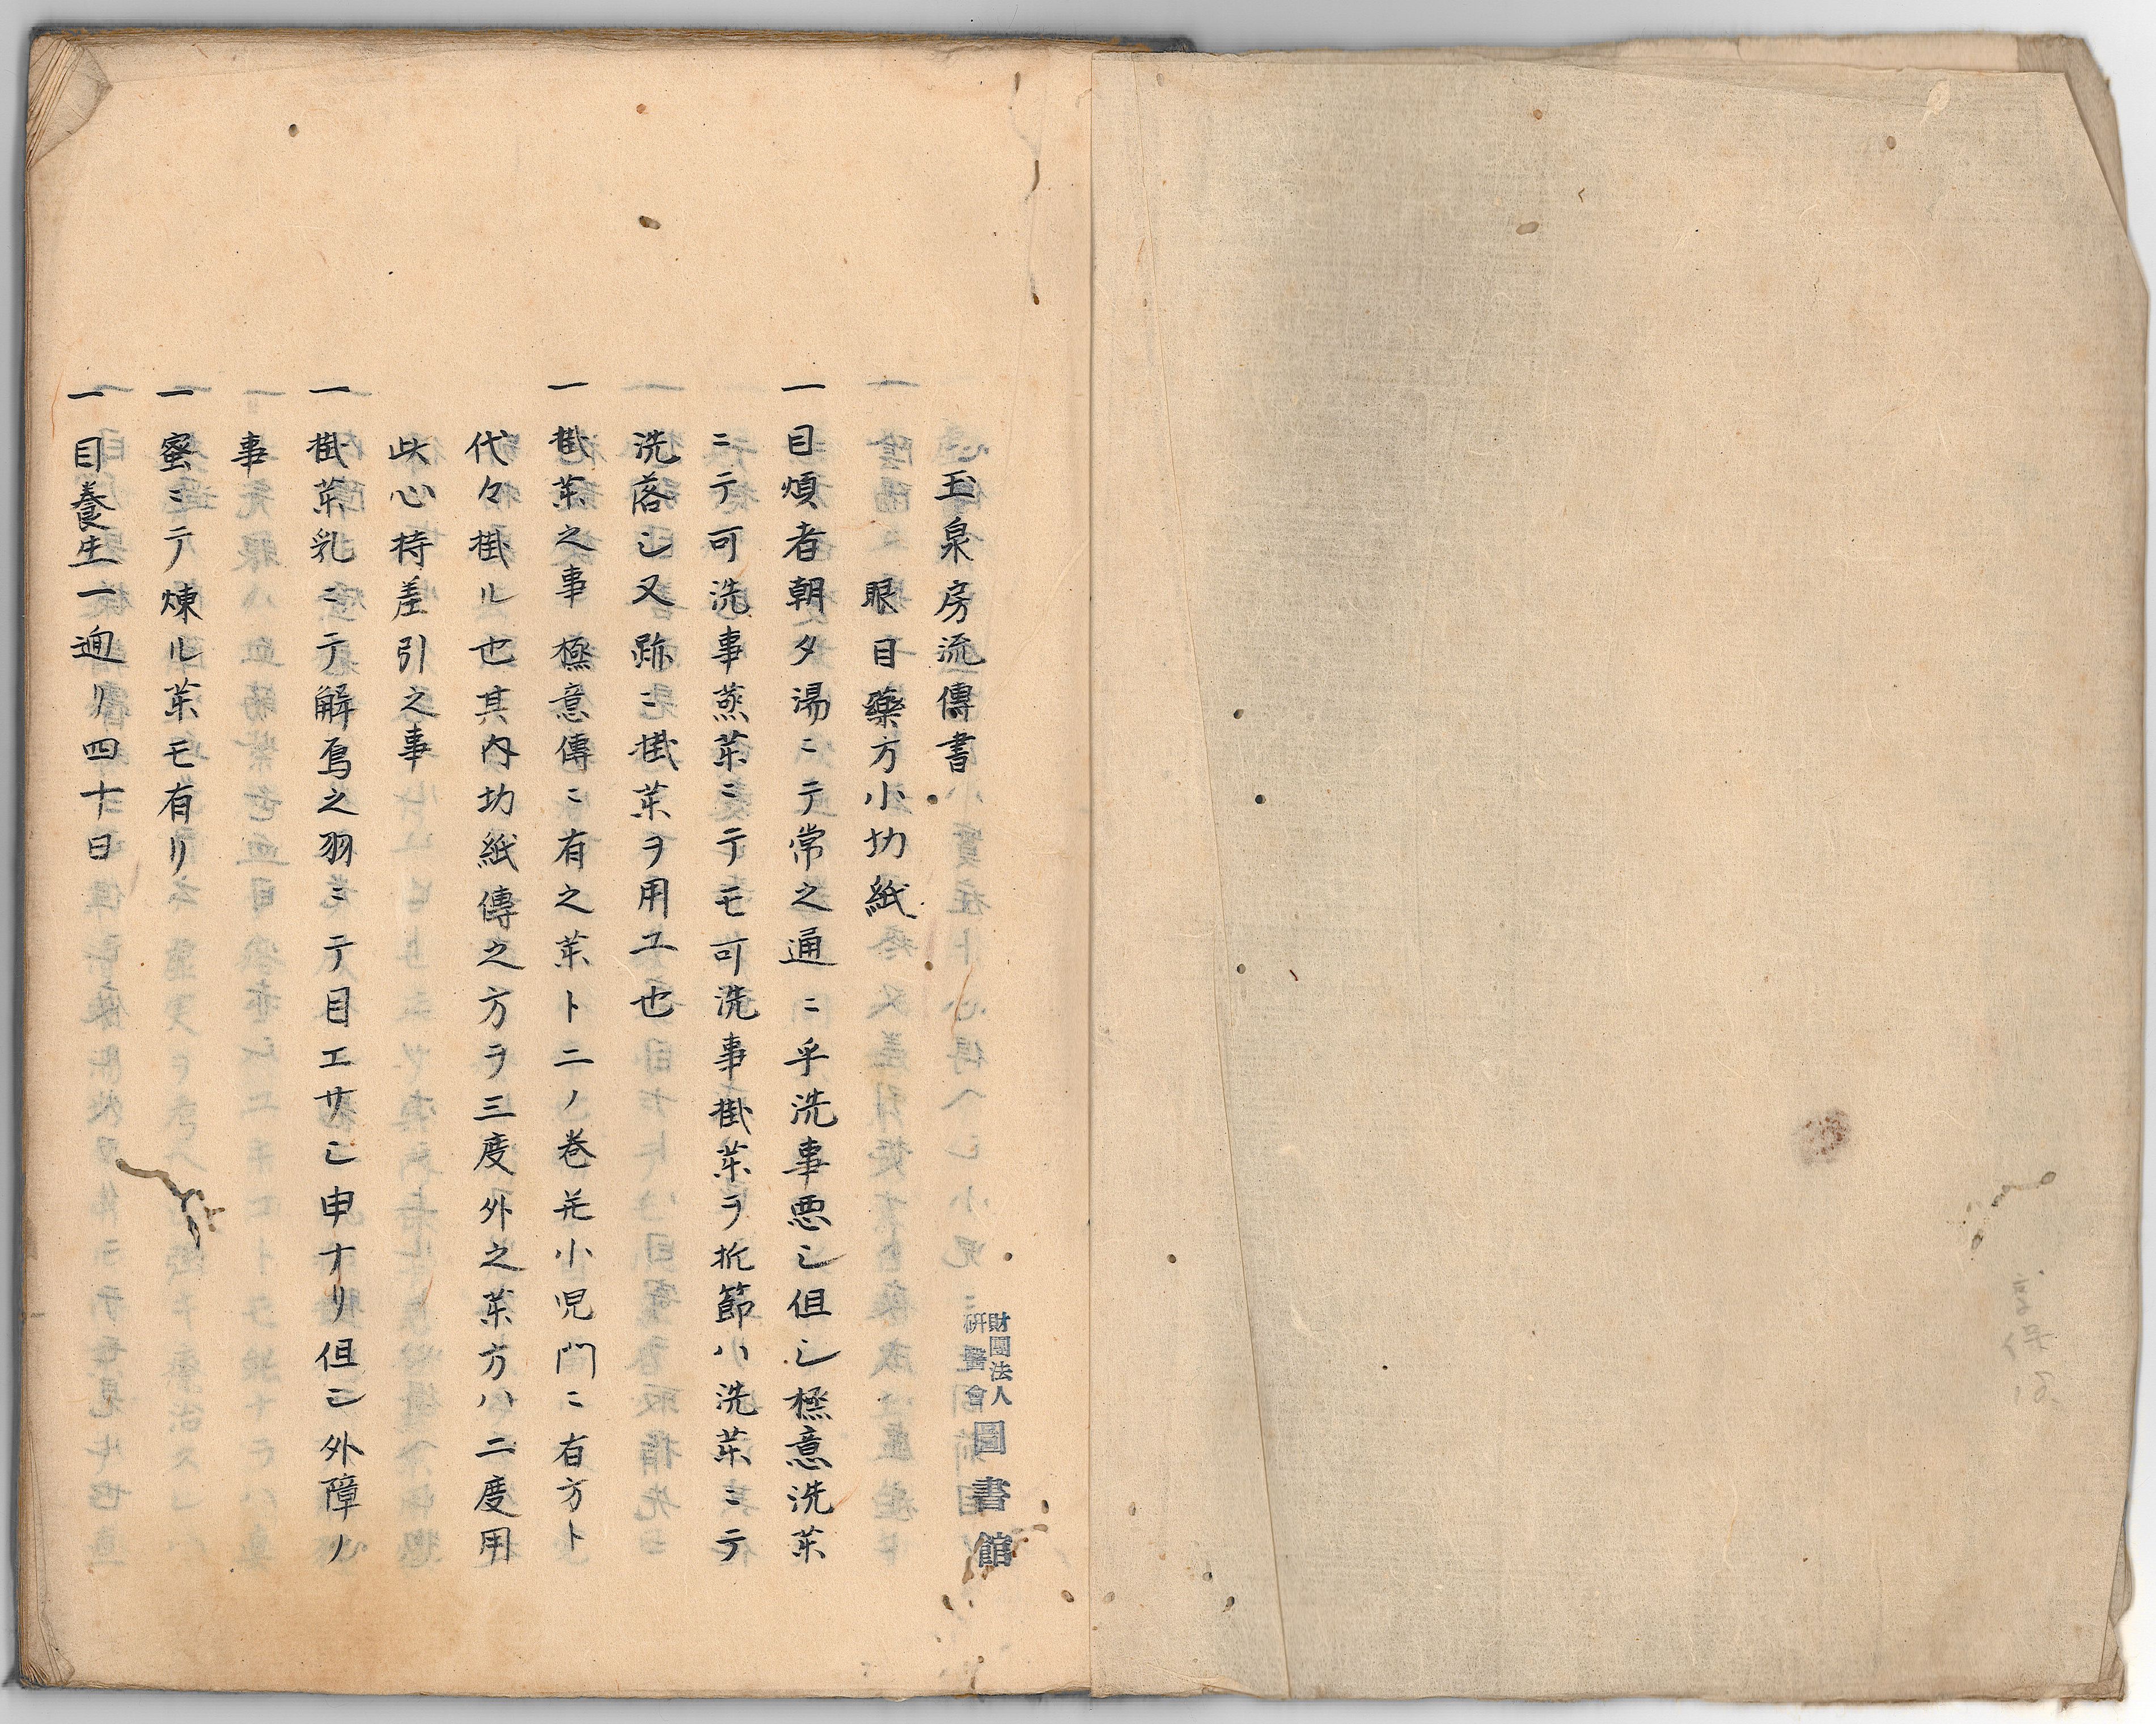 玉泉房流傳書
眼目藥方小切紙
一目煩者朝夕湯ニテ常之通ニ乎洗事悪シ但シ極意洗茉
ニテ可洗事蒸茉ニテモ可洗事掛茉ヲ拆節ハ洗茉ニテ
洗落シ又跡ニ掛茉ヲ用ユ也
一掛茉之事極意傳ニ有之茉ト二ノ巻并小児門ニ有方ト
代々掛ル也其内切紙傳之方ラ三度外之茉方ハ二度用
此心持差引之事
一掛茉乳ニテ解鳥之羽ニテ目エサシ申ナリ但シ外障ノ
事
一蜜ニテ煉ル茉モ有リ
一目養生一廻リ四十日
財團法人
研醫會
圖書館
享保
18